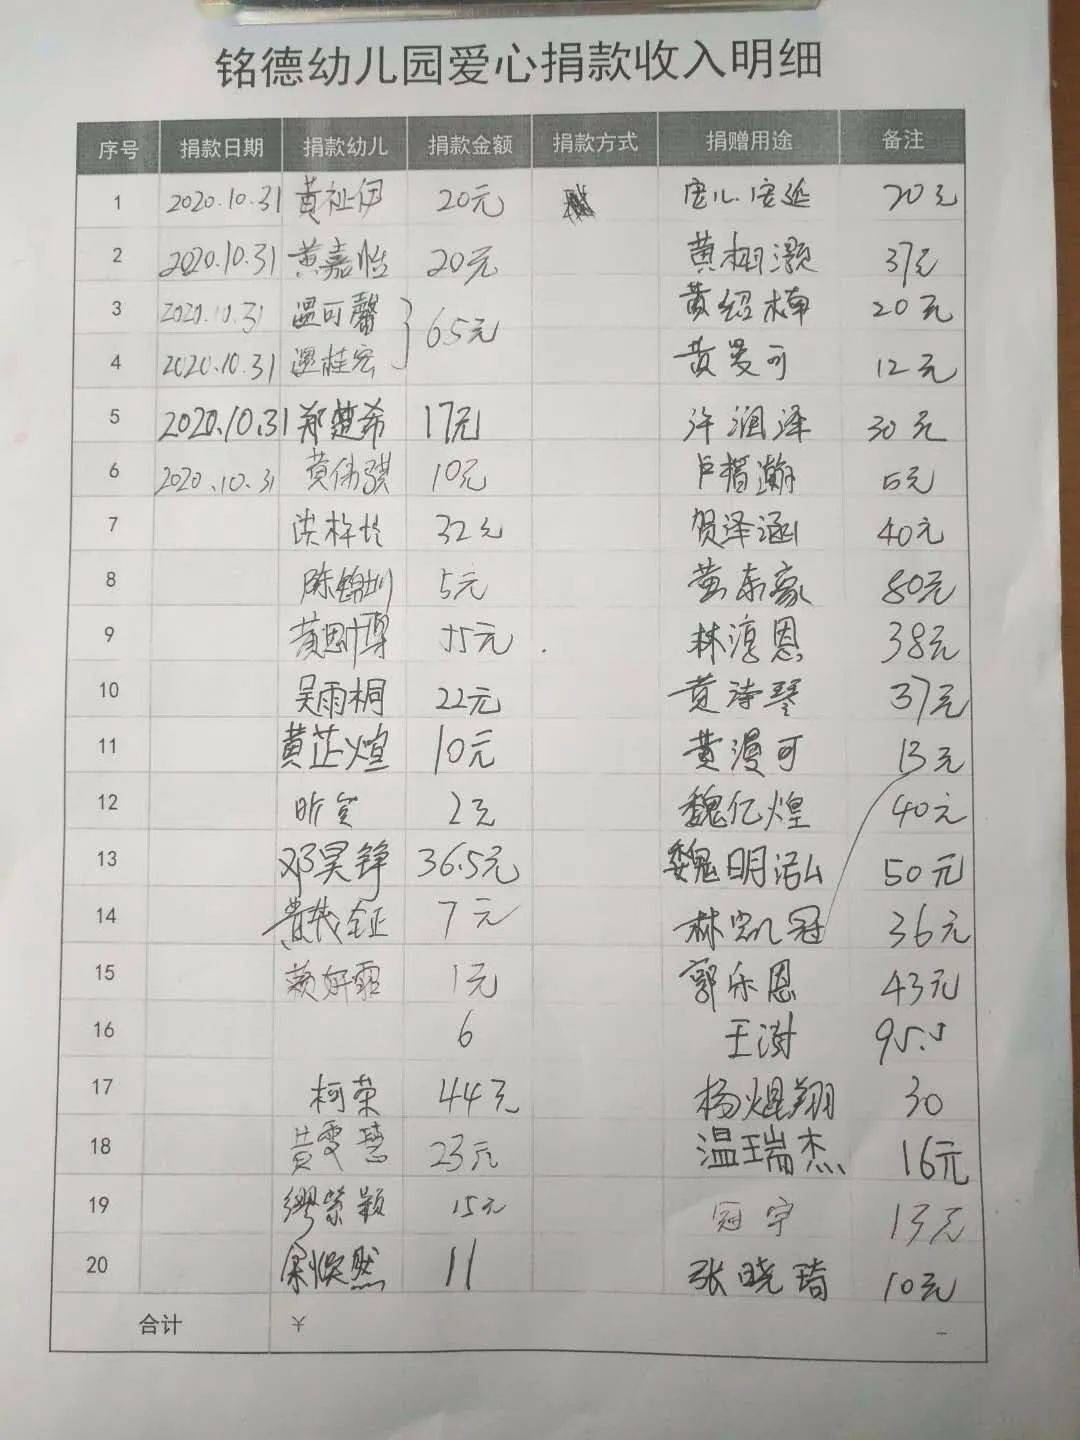 铭德幼儿园爱心捐款收入明细
序号 捐款日期 捐款幼儿 捐款金额 捐款方式 捐赠用途 备注
1 2020.10.31 黄祉伊 20元 20元
2 2020.10.31 黄嘉怡 20元 黄栩灏 37元
3 2020.10.31 温可馨 65元 黄绍楠 20元
4 2020.10.31 温桂宏 黄曼可 12元
5 2020.10.31 郑楚希 17元 许润泽 30元
6 2020.10.31 黄伟骐 10元 5元
7 32元 贺泽涵 40元
8 5元 黄东豪 80元
9 元 林淳恩 38元
10 吴雨桐 22元 黄诗琴 37元
11 黄芷煊 10元 黄漫可 13元
12 2元 魏亿煌 40元
13 邓昊铮 36.5元 魏明泓 50元
14 7元 林凯冠 36元
15 1元 郭乐恩 43元
16 6 王澍 95.5
17 柯荣 44元 杨焜翔 30
18 黄雯慧 23元 温瑞杰 16元
19 缪荣颖 15元 冠宇 13元
20 余焕然 11 张晓琦 10元
合计 ¥ –